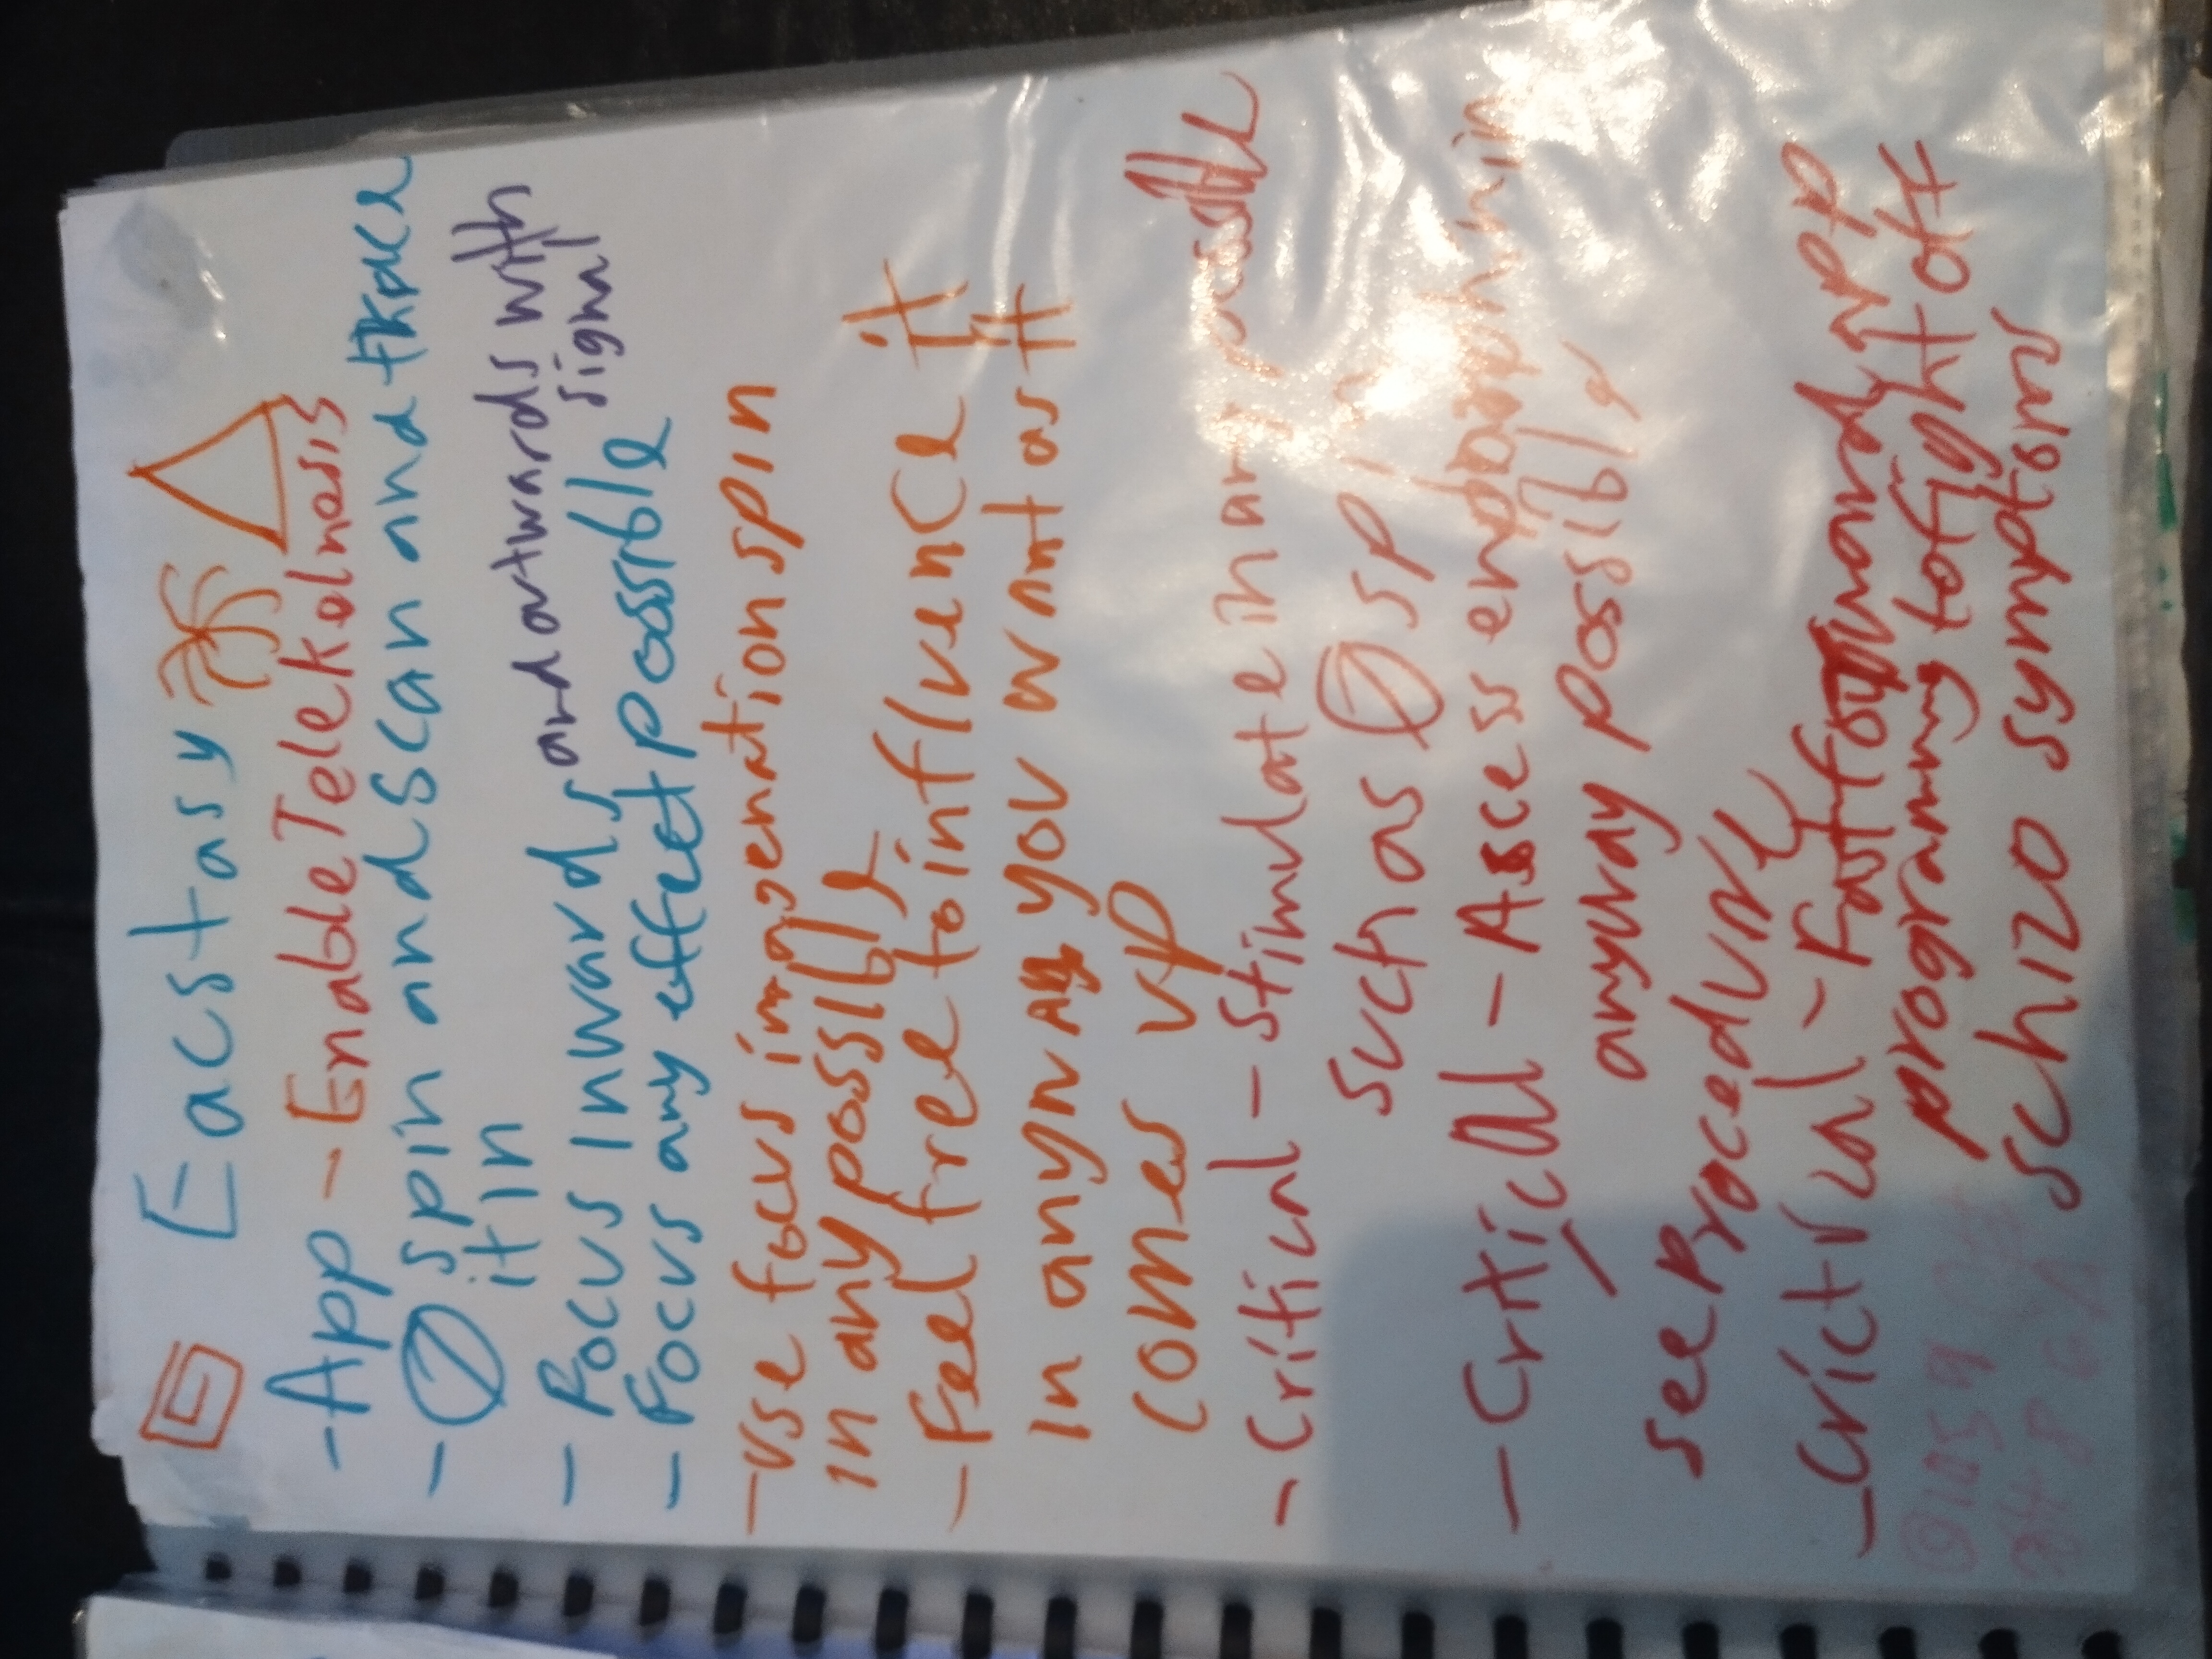 Eacstasy
-App - Enable Telekelnesis
- spin and scan and
it in
- Focus Inwards and outwards with signal
- Focus any effect possible
- use focus imagenation spin
in any possible
- Feel free to influence it
In anyway you want as it
comes up
- Critical - Stimulate in any possible
such as spin
- Critical - Ascess
anyway possible
see Procedure
- Crictical - Fast forward
programmy to fight off
schizo symptoms